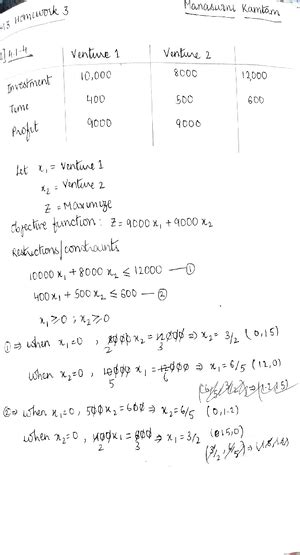 Homework 3
Manaswini Kamtam
4.1-4
Venture 1 Venture 2
Investment 10,000 8000 12,000
Time 400 500 600
Profit 9000 9000
Let x₁ = Venture 1
x₂ = Venture 2
Z = Maximize
Objective function: Z = 9000x₁ + 9000x₂
Restrictions/constraints
10000x₁ + 8000x₂ ≤ 12000 — ①
400x₁ + 500x₂ ≤ 600 — ②
x₁ ≥ 0 ; x₂ ≥ 0
① ⇒ when x₁=0, 8000 x₂ = 12000 ⇒ x₂ = 3/2 (0,1.5)
2 3
when x₂=0, 10000 x₁ = 12000 ⇒ x₁ = 6/5 (1.2,0)
5 6
② ⇒ when x₁=0, 500x₂ = 600 ⇒ x₂ = 6/5 (0,1.2)
when x₂=0, 400x₁ = 600 ⇒ x₁ = 3/2 (1.5,0)
2 3